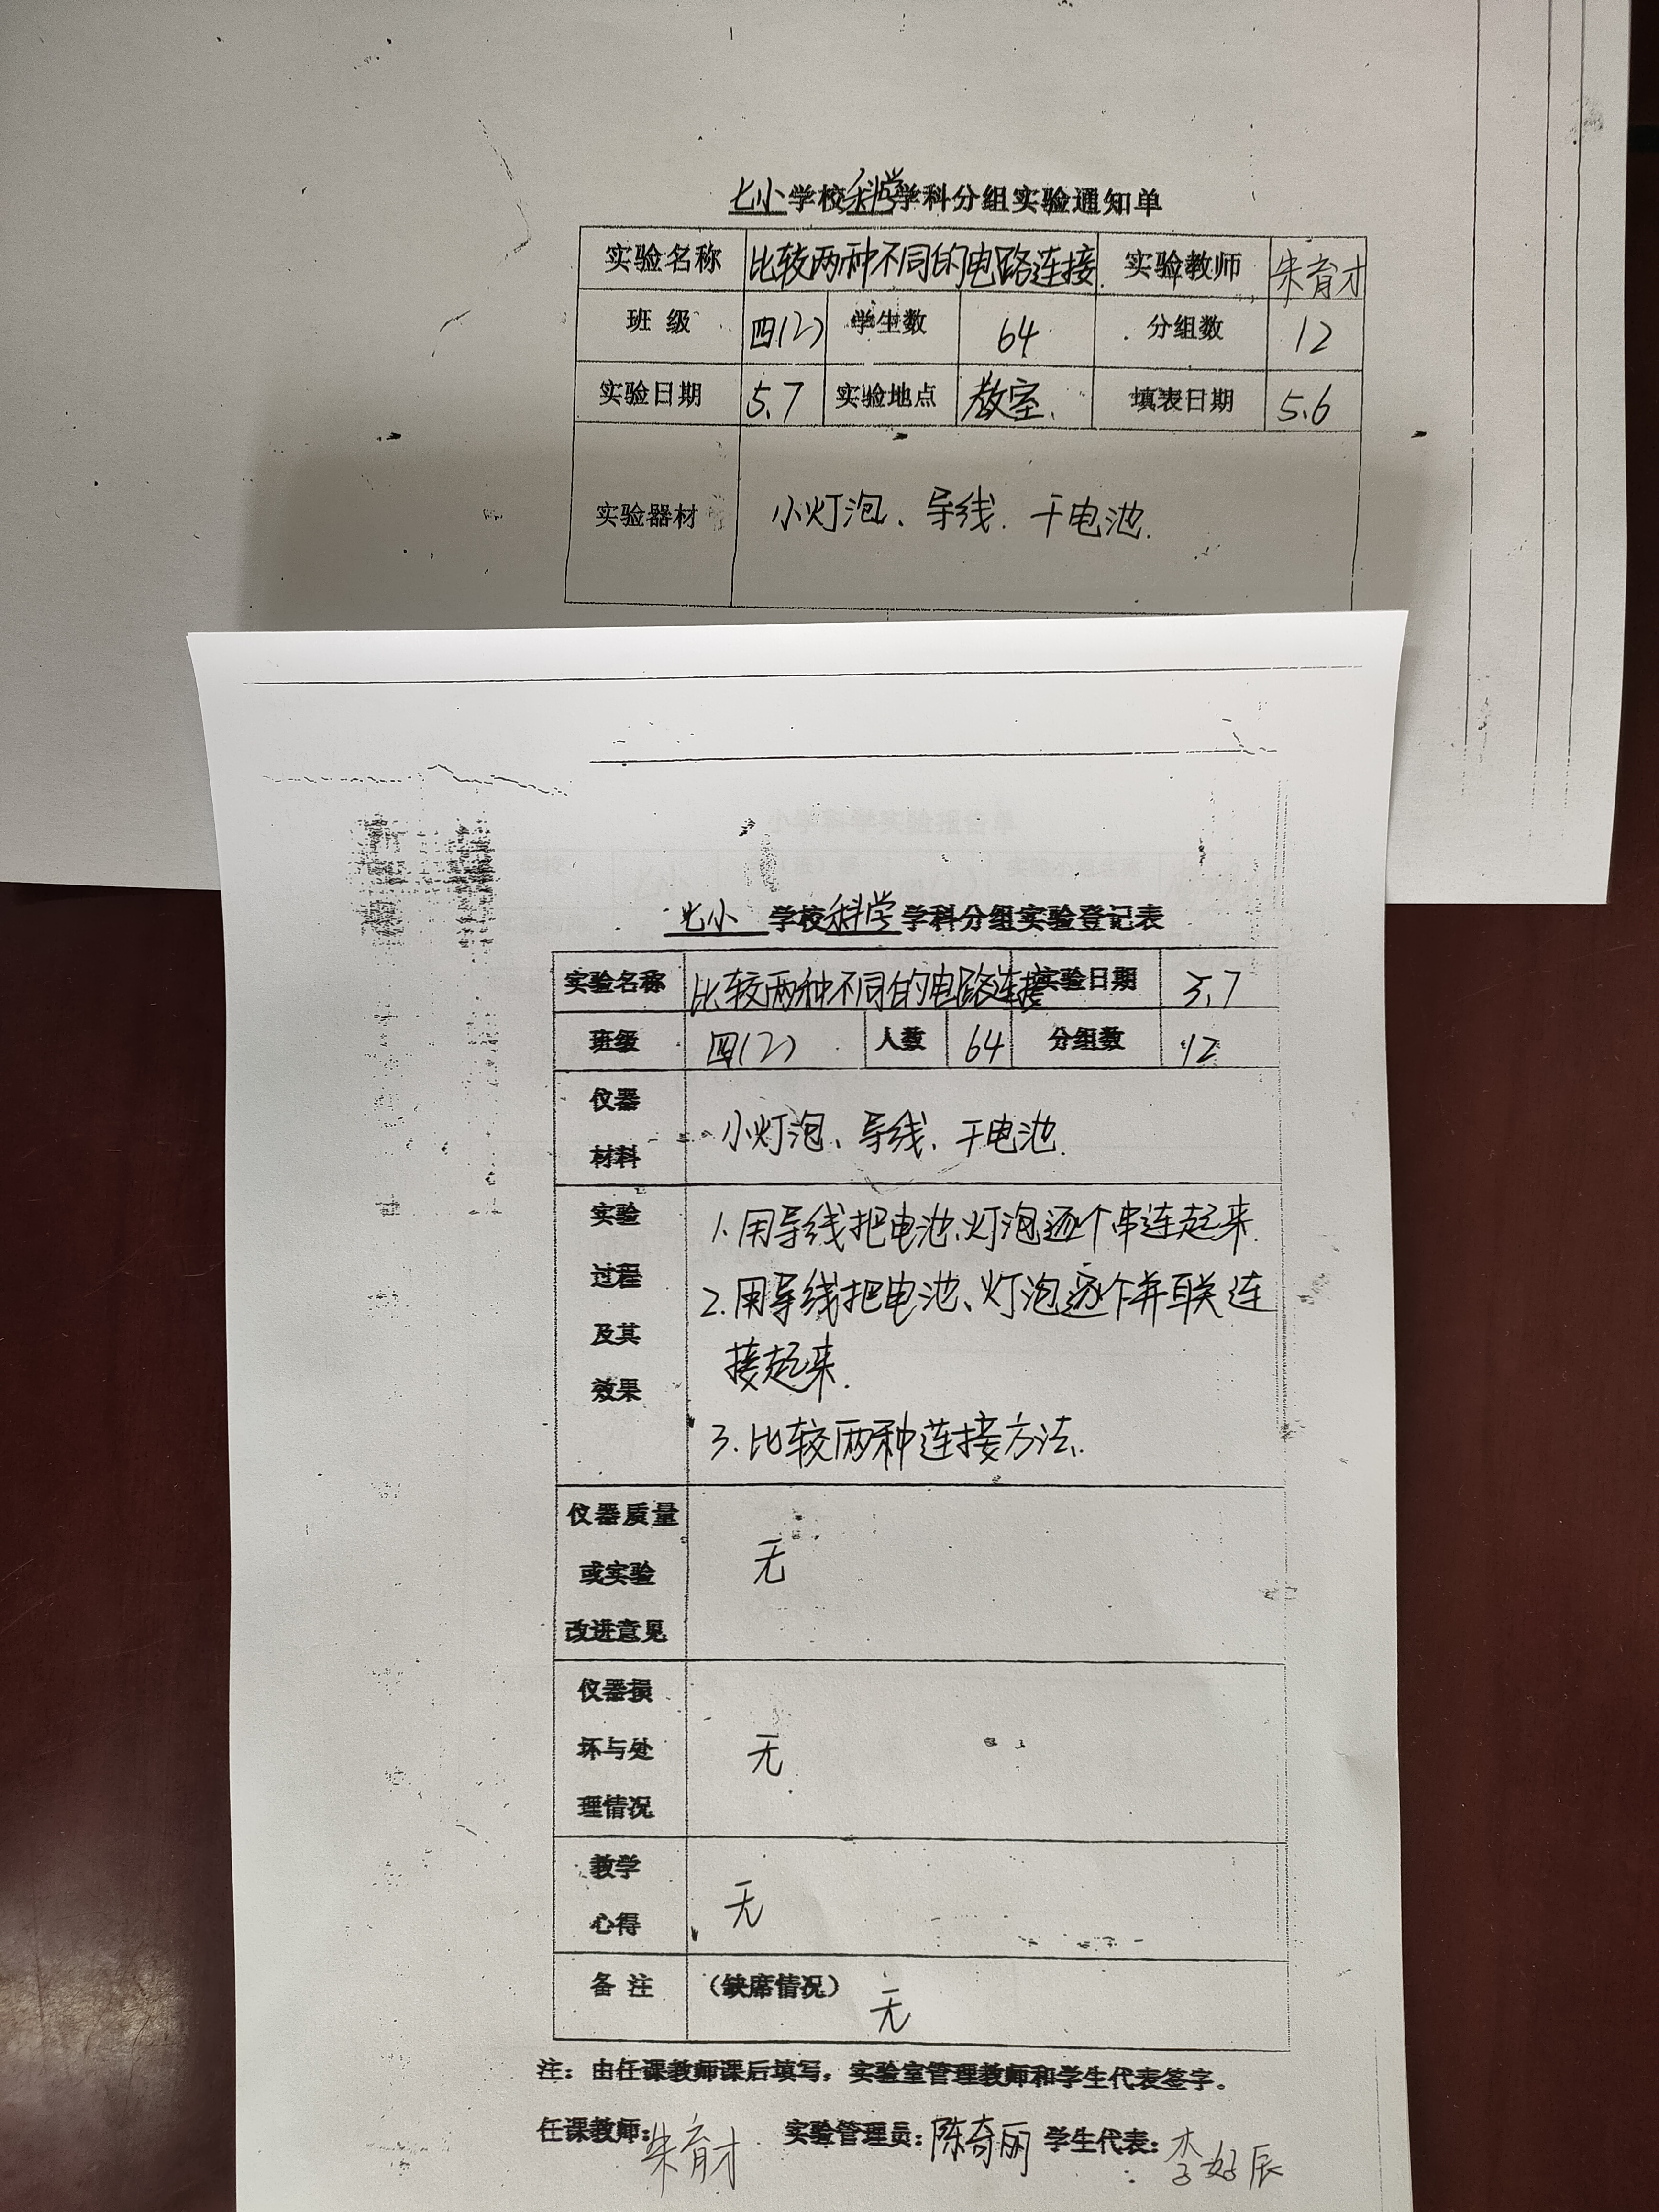 七小学校科学学科分组实验通知单
实验名称 比较两种不同的电路连接. 实验教师 朱育才
班 级 四(2) 学生数 64 分组数 12
实验日期 5.7 实验地点 教室. 填表日期 5.6
实验器材 小灯泡、导线.干电池.
七小 学校科学学科分组实验登记表
实验名称 比较两种不同的电路连接 实验日期 5.7
班级 四(2) 人数 64 分组数 12
仪器
材料
小灯泡、导线、干电池.
实验
过程
及其
效果
1.用导线把电池、灯泡逐个串连起来.
2.用导线把电池、灯泡逐个并联连
接起来.
3.比较两种连接方法.
仪器质量
或实验
改进意见
无
仪器损
坏与处
理情况
无
教学
心得
无
备 注 (缺席情况) 无
注：由任课教师课后填写，实验室管理教师和学生代表签字。
任课教师:朱育才 实验管理员:陈奇丽 学生代表:李好辰